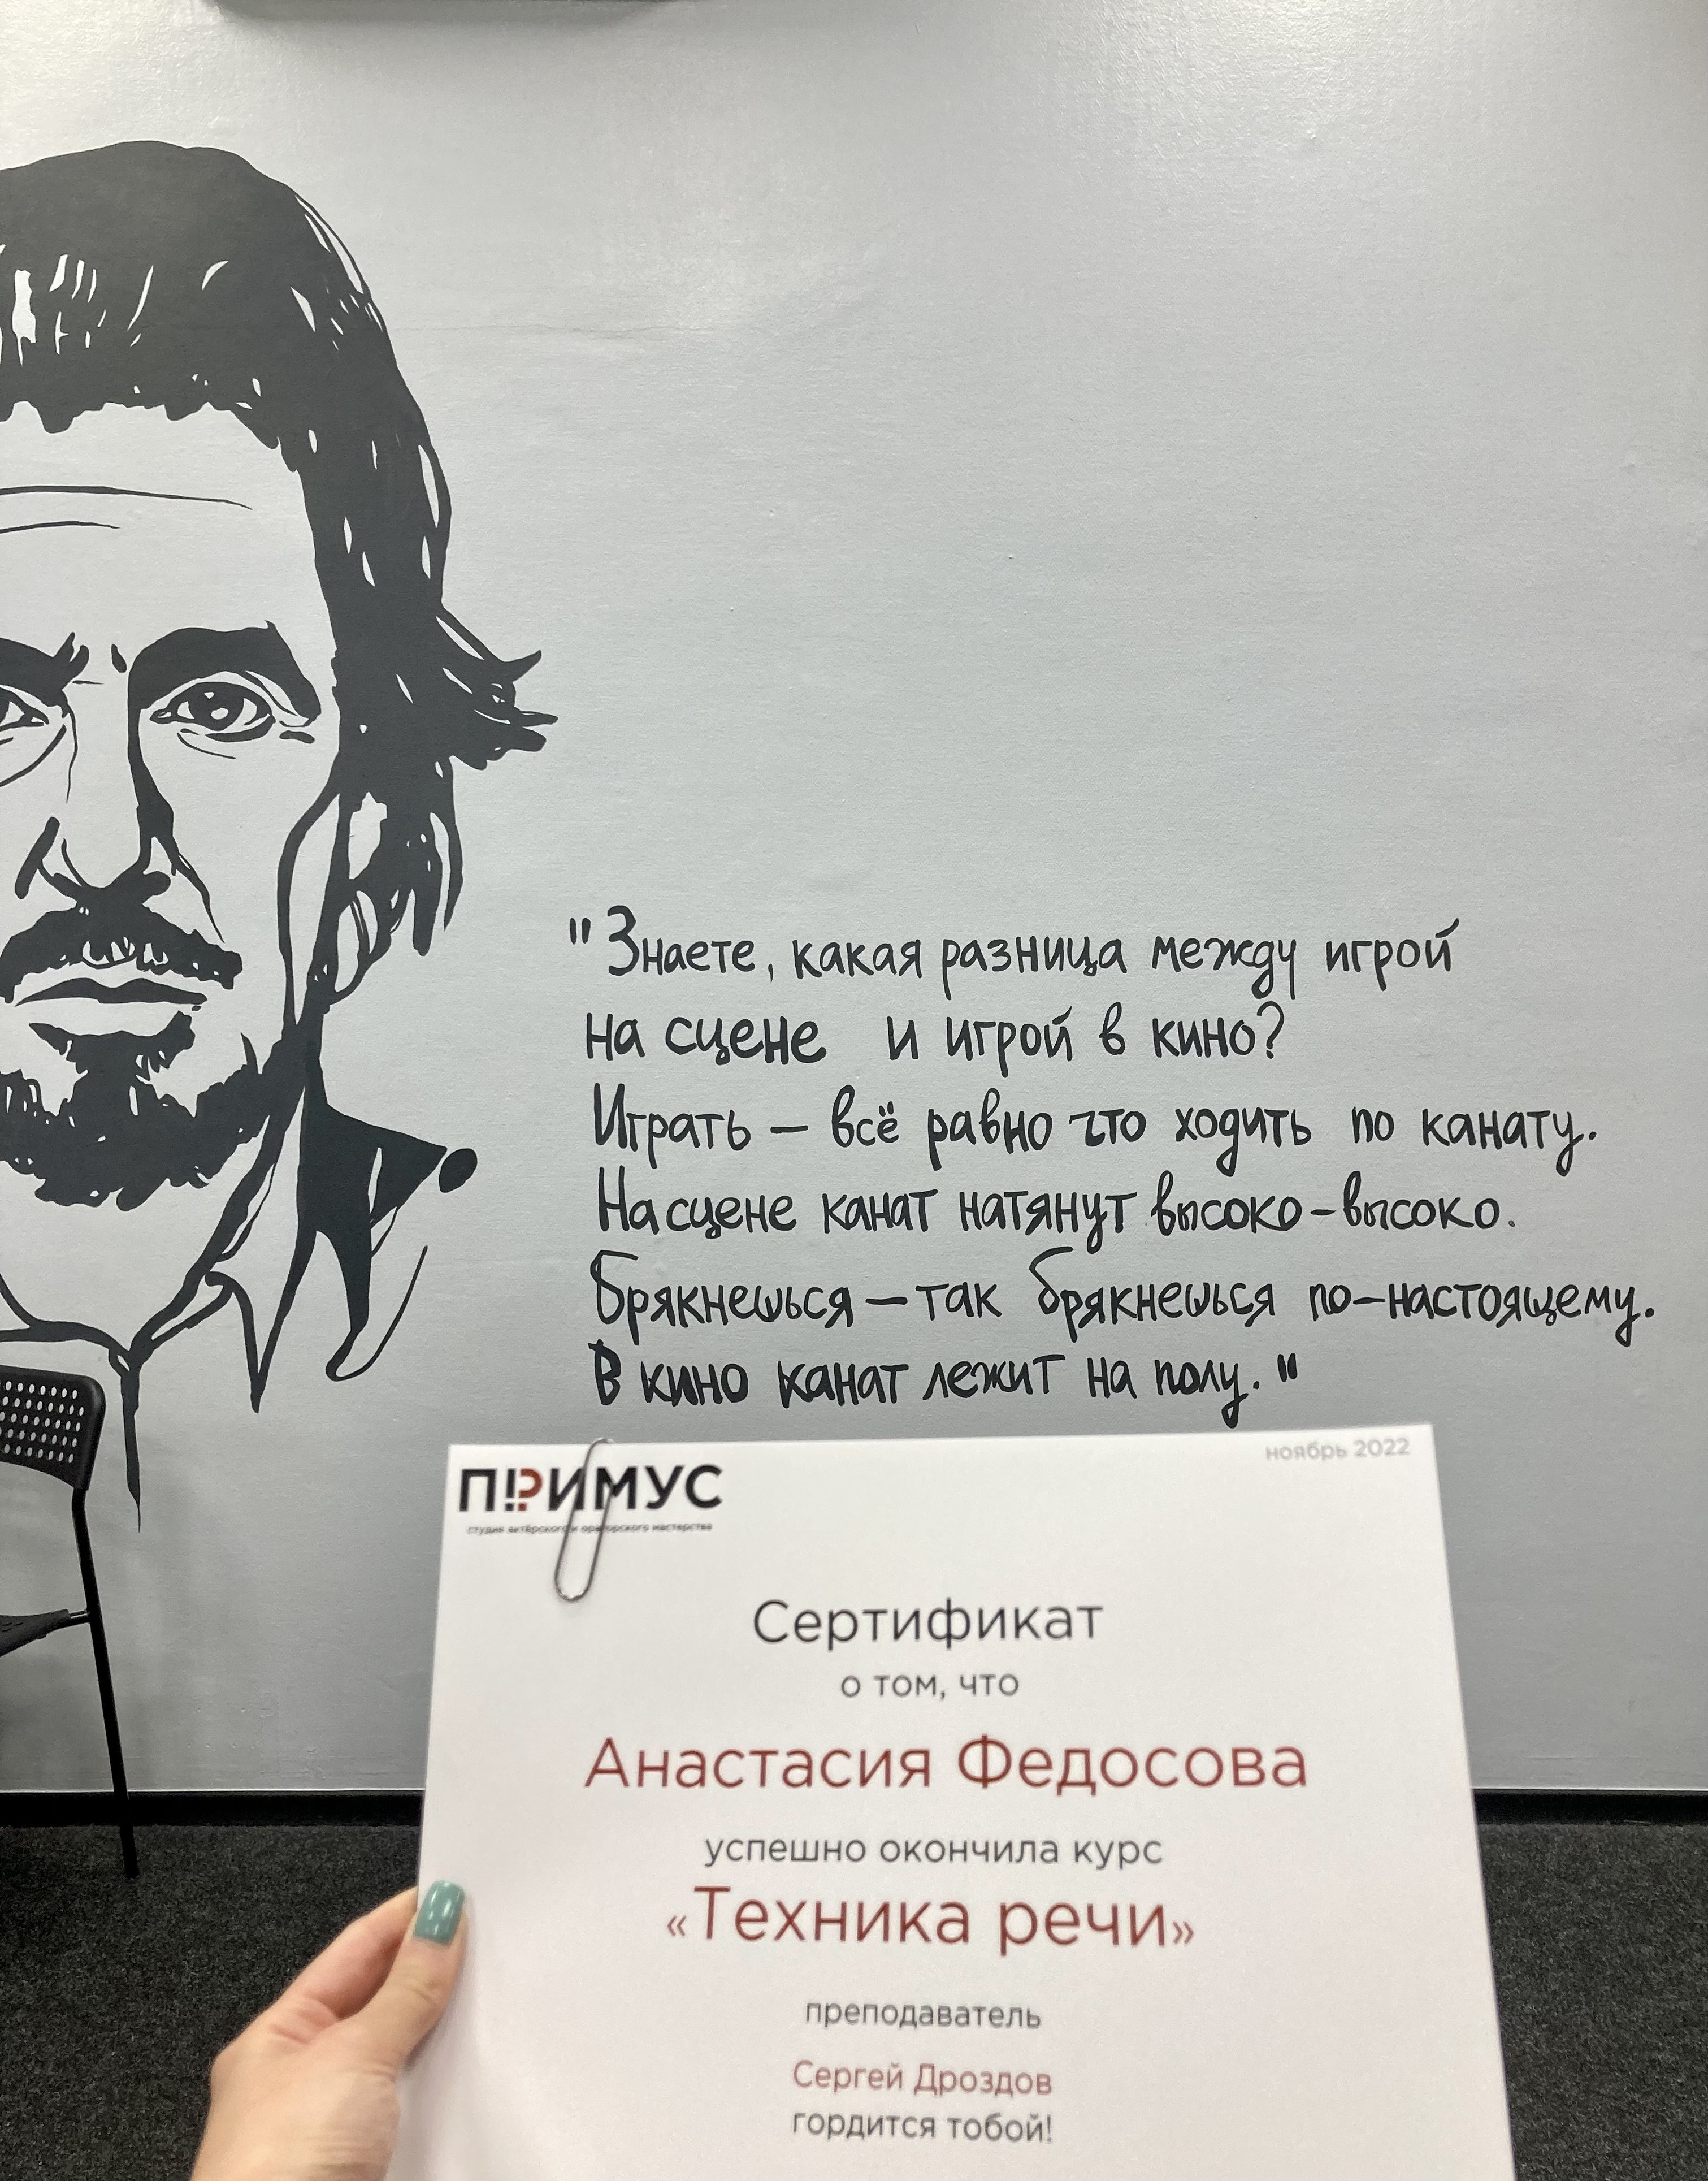 "Знаете, какая разница между игрой
на сцене и игрой в кино?
Играть – всё равно что ходить по канату.
На сцене канат натянут высоко-высоко.
Брякнешься – так брякнешься по-настоящему.
В кино канат лежит на полу."
ноябрь 2022
ПРИМУС
студия актёрского и ораторского мастерства
Сертификат
о том, что
Анастасия Федосова
успешно окончила курс
«Техника речи»
преподаватель
Сергей Дроздов
гордится тобой!